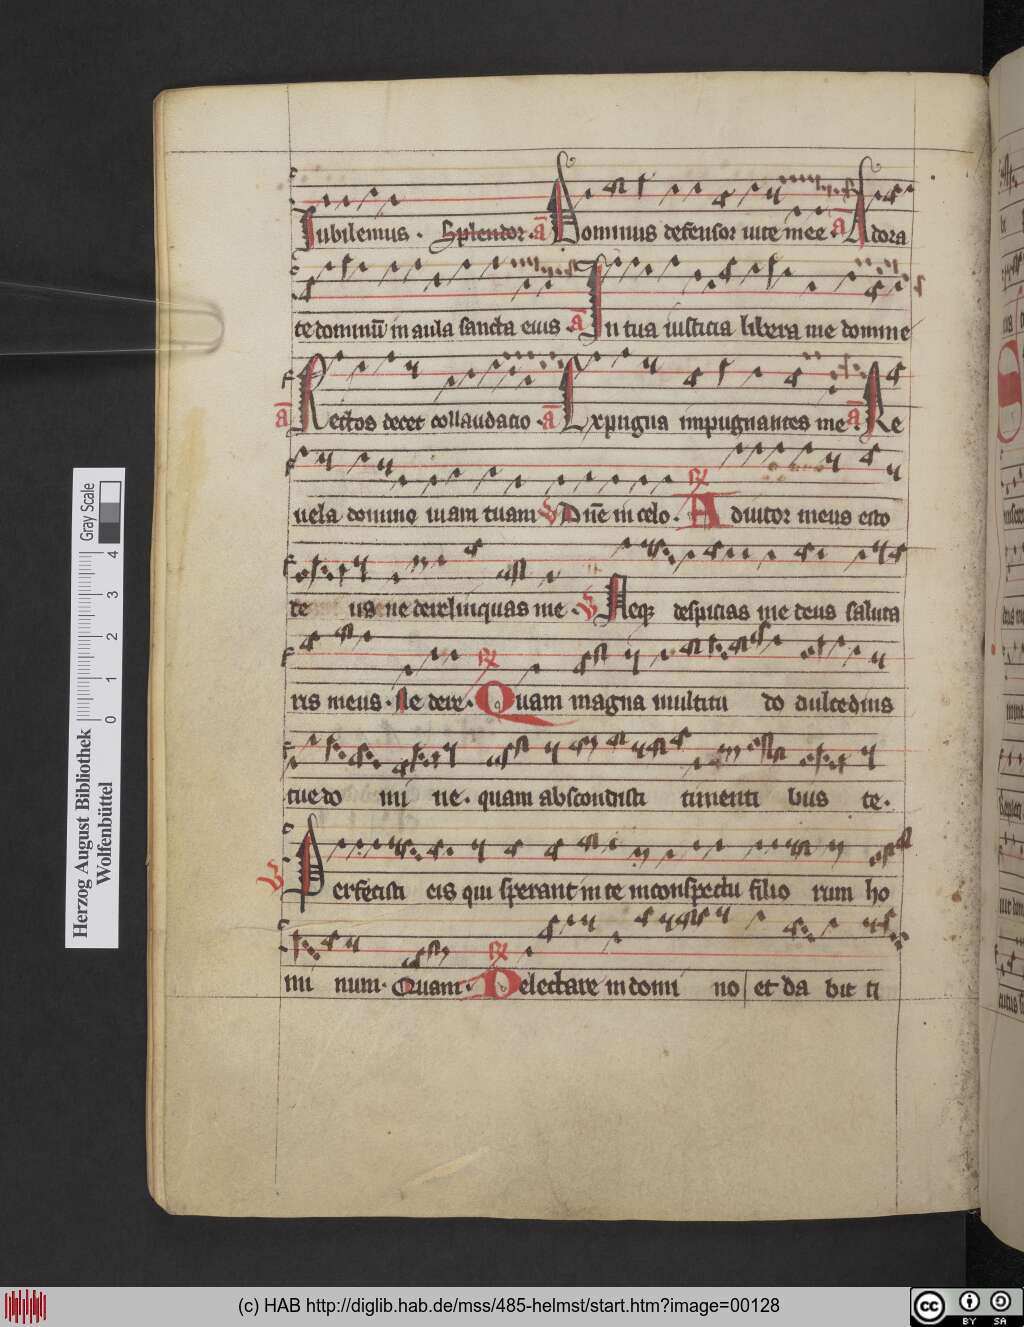 Iubilemus. Splendor. a Dominus defensor uite mee. a Adora
te dominū in aula sancta eius. a In tua iusticia libera me domine
a Rectos decet collaudatio. a Expugna impugnantes me. a Re
uela domino uiam tuam V Dn̄e in celo. R A diutor meus esto
te us ne derelinquas me. V Neq despicias me deus saluta
ris meus. Ne dere. R Quam magna multitu do dulcedinis
tue do mi ne. quam abscondisti timenti bus te.
V Perfecisti eis qui sperant in te in conspectu filio rum ho
mi num. Quam. R Delectare in domi no et da bit ti
Herzog August Bibliothek
Wolfenbüttel
0 1 2 3 4
Gray Scale
(c) HAB http://diglib.hab.de/mss/485-helmst/start.htm?image=00128
cc BY SA